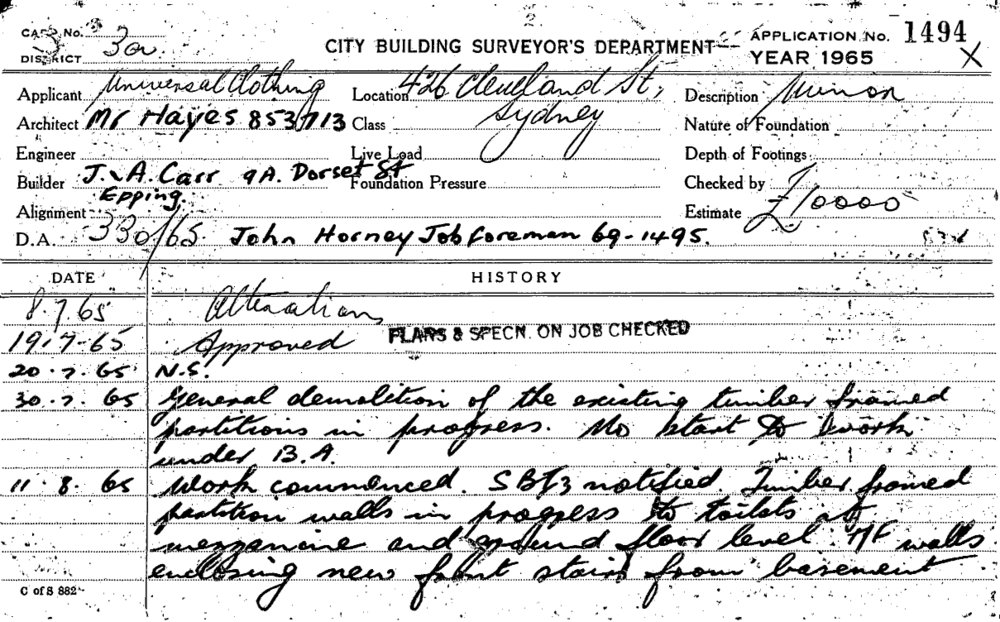 2.
CARD No. 3
DISTRICT 3a
CITY BUILDING SURVEYOR'S DEPARTMENT
APPLICATION No. 1494 X
YEAR 1965
Applicant Universal Clothing Location 426 Cleveland St, Description Minor
Sydney
Architect Mr Hayes 853713 Class Nature of Foundation
Engineer Live Load Depth of Footings
Builder J. & A. Carr 9A. Dorset St Foundation Pressure Checked by
Epping.
Alignment Estimate £10000
D.A. 330/65 John Horney Job foreman 69-1495.
DATE HISTORY
8.7.65 Alterations
19.7-65 Approved PLANS & SPECN. ON JOB CHECKED
20.7.65 N.S.
30.7.65 General demolition of the existing timber framed
partitions in progress. No start to work
under B.A.
11.8.65 Work commenced. notified Timber framed
partition walls in progress to toilets at
mezzanine and ground floor level. walls
enclosing new front stairs from basement
C of S 882